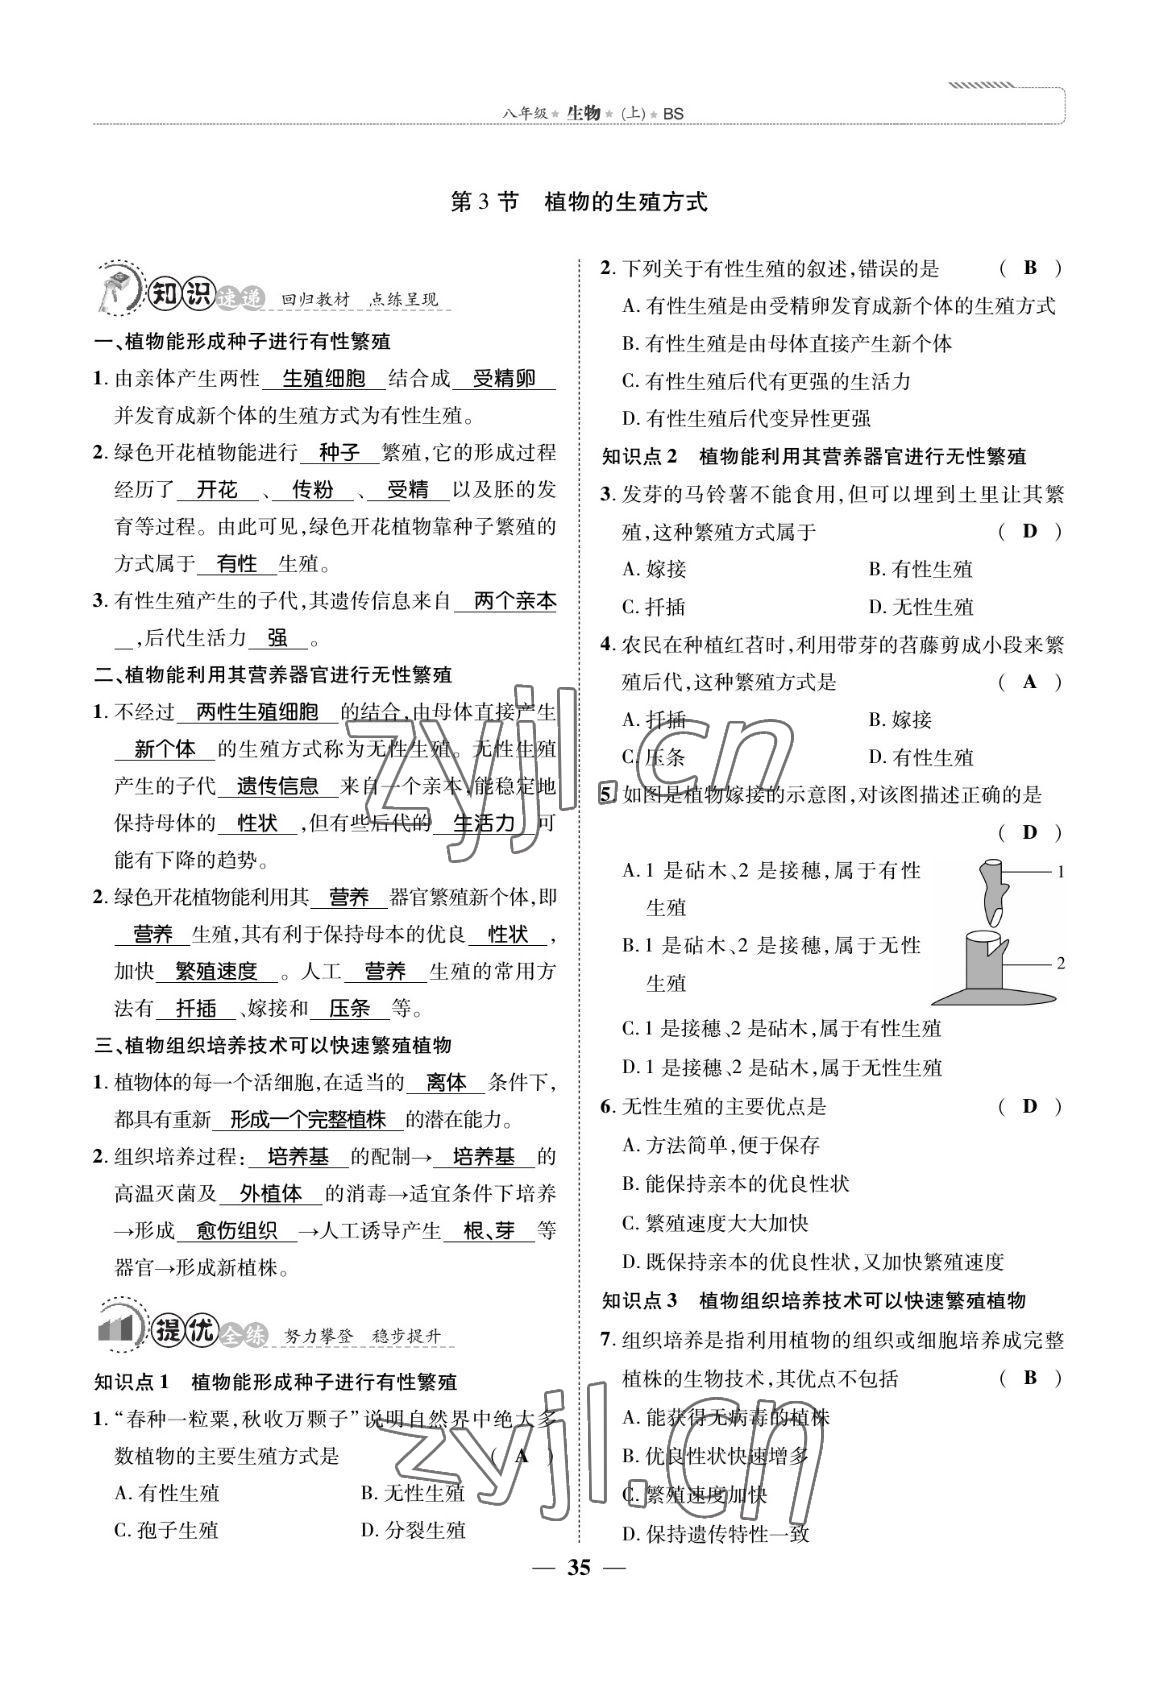 八年级 生物 (上) BS
第3节 植物的生殖方式
知识速递 回归教材 点练呈现
一、植物能形成种子进行有性繁殖
1. 由亲体产生两性 生殖细胞 结合成 受精卵
并发育成新个体的生殖方式为有性生殖。
2. 绿色开花植物能进行 种子 繁殖,它的形成过程
经历了 开花 、 传粉 、 受精 以及胚的发
育等过程。由此可见,绿色开花植物靠种子繁殖的
方式属于 有性 生殖。
3. 有性生殖产生的子代,其遗传信息来自 两个亲本
,后代生活力 强 。
二、植物能利用其营养器官进行无性繁殖
1. 不经过 两性生殖细胞 的结合,由母体直接产生
新个体 的生殖方式称为无性生殖。无性生殖
产生的子代 遗传信息 来自一个亲本,能稳定地
保持母体的 性状 ,但有些后代的 生活力 可
能有下降的趋势。
2. 绿色开花植物能利用其 营养 器官繁殖新个体,即
营养 生殖,其有利于保持母本的优良 性状 ,
加快 繁殖速度 。人工 营养 生殖的常用方
法有 扦插 、嫁接和 压条 等。
三、植物组织培养技术可以快速繁殖植物
1. 植物体的每一个活细胞,在适当的 离体 条件下,
都具有重新 形成一个完整植株 的潜在能力。
2. 组织培养过程: 培养基 的配制→ 培养基 的
高温灭菌及 外植体 的消毒→适宜条件下培养
→形成 愈伤组织 →人工诱导产生 根、芽 等
器官→形成新植株。
提优全练 努力攀登 稳步提升
知识点1 植物能形成种子进行有性繁殖
1. “春种一粒粟,秋收万颗子”说明自然界中绝大多
数植物的主要生殖方式是 ( A )
A. 有性生殖 B. 无性生殖
C. 孢子生殖 D. 分裂生殖
2. 下列关于有性生殖的叙述,错误的是 ( B )
A. 有性生殖是由受精卵发育成新个体的生殖方式
B. 有性生殖是由母体直接产生新个体
C. 有性生殖后代有更强的生活力
D. 有性生殖后代变异性更强
知识点2 植物能利用其营养器官进行无性繁殖
3. 发芽的马铃薯不能食用,但可以埋到土里让其繁
殖,这种繁殖方式属于 ( D )
A. 嫁接 B. 有性生殖
C. 扦插 D. 无性生殖
4. 农民在种植红苕时,利用带芽的苕藤剪成小段来繁
殖后代,这种繁殖方式是 ( A )
A. 扦插 B. 嫁接
C. 压条 D. 有性生殖
5. 如图是植物嫁接的示意图,对该图描述正确的是
( D )
A. 1 是砧木、2 是接穗,属于有性
生殖
B. 1 是砧木、2 是接穗,属于无性
生殖
1
2
C. 1 是接穗、2 是砧木,属于有性生殖
D. 1 是接穗、2 是砧木,属于无性生殖
6. 无性生殖的主要优点是 ( D )
A. 方法简单,便于保存
B. 能保持亲本的优良性状
C. 繁殖速度大大加快
D. 既保持亲本的优良性状,又加快繁殖速度
知识点3 植物组织培养技术可以快速繁殖植物
7. 组织培养是指利用植物的组织或细胞培养成完整
植株的生物技术,其优点不包括 ( B )
A. 能获得无病毒的植株
B. 优良性状快速增多
C. 繁殖速度加快
D. 保持遗传特性一致
— 35 —
zyjl.cn
zyjl.cn